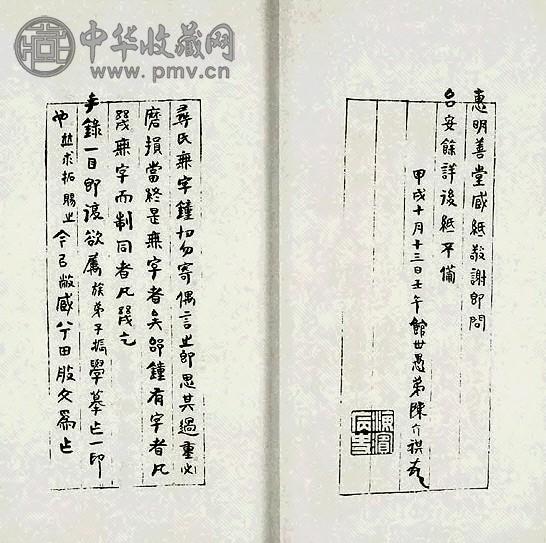 中华收藏网
www.pmv.cn
惠明善堂藏紙敬謝即問
台安餘詳後紙不備
甲戌十月十三日壬午館世愚弟陳介祺
尋氏無字鐘切勿寄偶言之即思其過重必
磨損當終是無字者矣郘鐘有字者凡
幾無字而制同者凡幾乞
手錄一目即復欲屬族弟子振學摹乍一印
也並求拓賜之今已敝藏兮田般文為乍